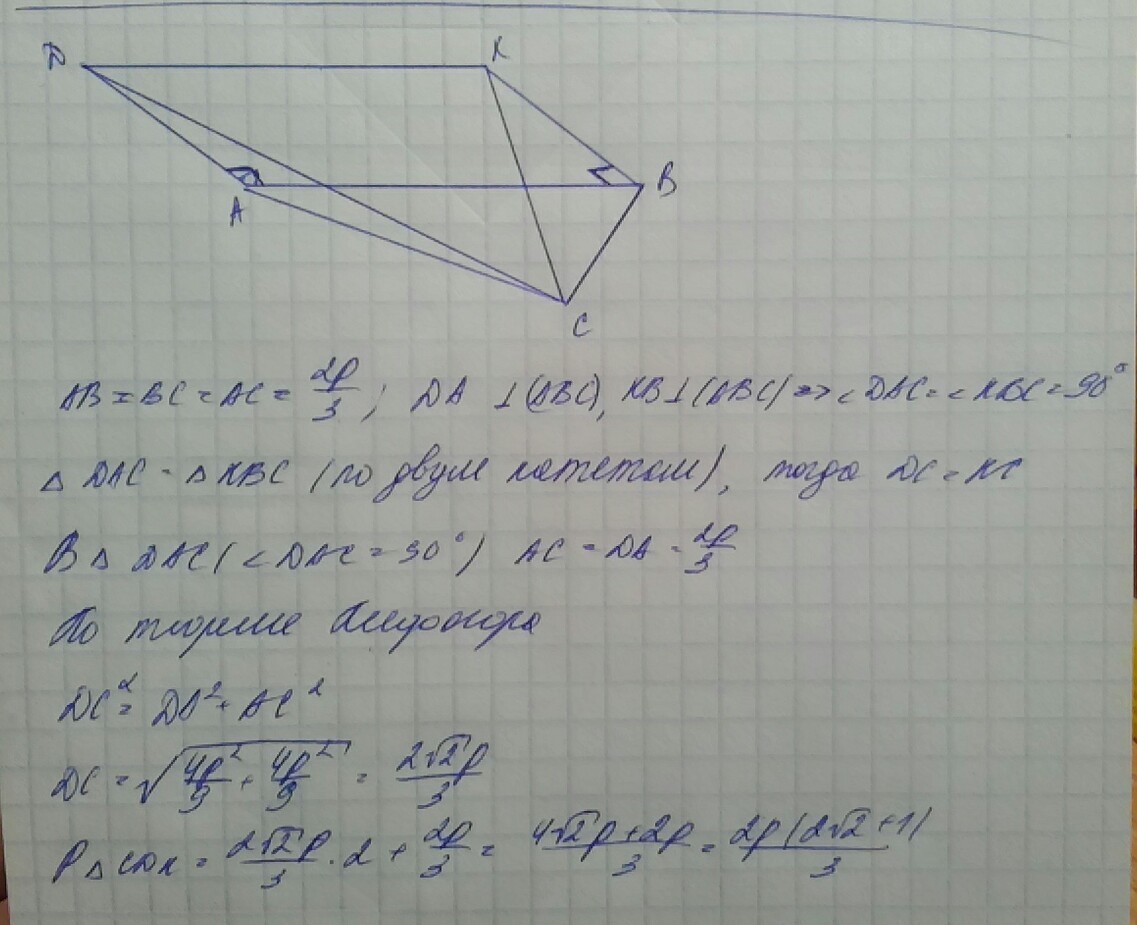 D K
A B
C
AB = BC = AC = 2p/3 ; DA ⊥ (ABC), KB ⊥ (ABC) => ∠DAC = ∠KBC = 90°
△ DAC = △ KBC (по двум катетам), тогда DC = KC
В △ DAC (∠DAC = 90°) AC = DA = 2p/3
По теореме Пифагора
DC² = DA² + AC²
DC = √(4p²/9 + 4p²/9) = 2√2p/3
P△CDK = 2√2p/3 · 2 + 2p/3 = 4√2p+2p/3 = 2p(2√2+1)/3